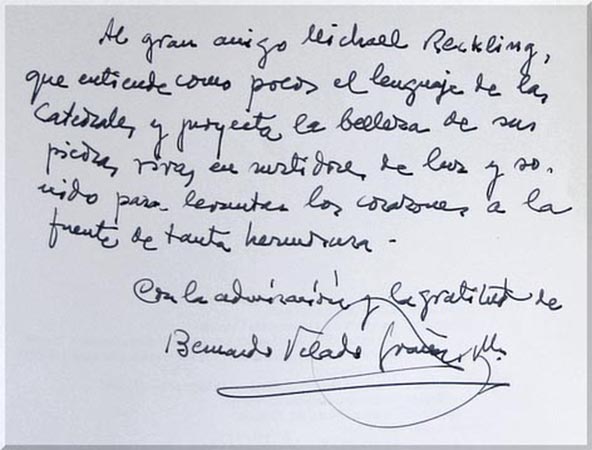 Al gran amigo Michael Reckling,
que entiende como pocos el lenguaje de las
Catedrales y proyecta la belleza de sus
piedras vivas en surtidores de luz y so-
nido para levantar los corazones a la
fuente de tanta hermosura -
Con la admiración y la gratitud de
Bernardo Velado